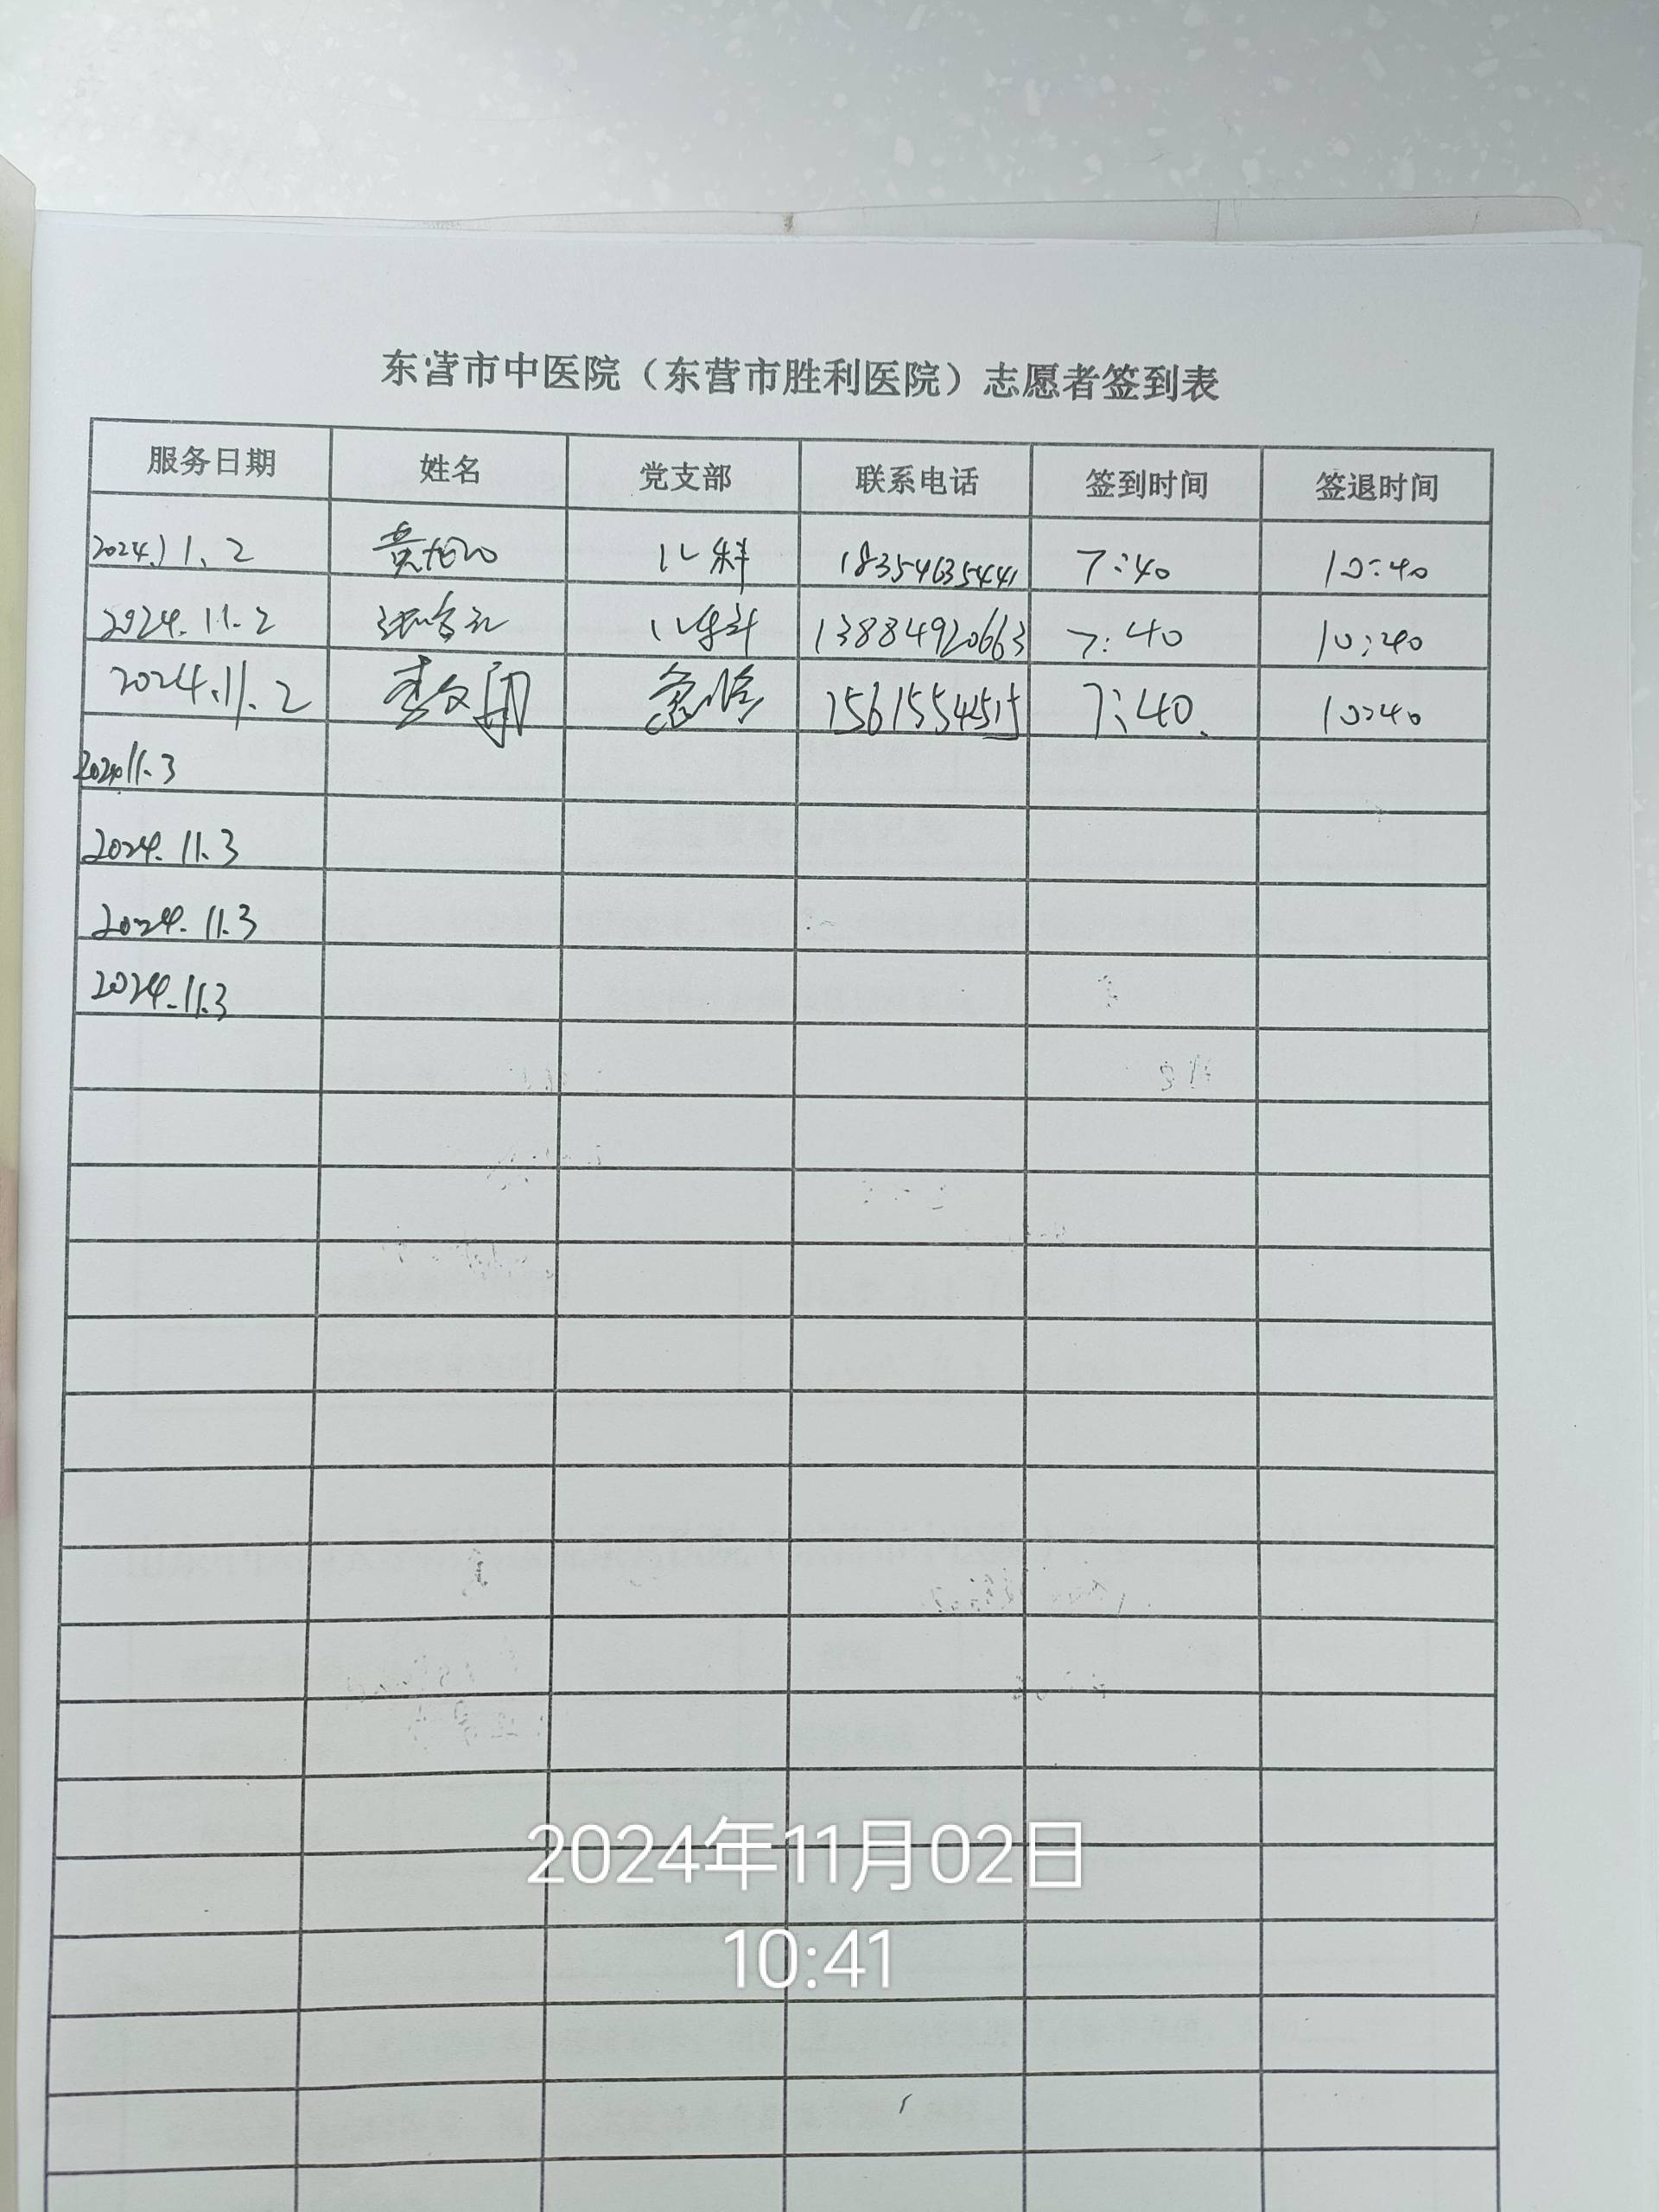 东营市中医院（东营市胜利医院）志愿者签到表
服务日期 姓名 党支部 联系电话 签到时间 签退时间
2024.11.2 黄 儿科 18354635441 7:40 10:40
2024.11.2 儿科 13884920663 7:40 10:40
2024.11.2 李文 156155451 7:40 10:40
2024.11.3
2024.11.3
2024.11.3
2024.11.3
2024年11月02日
10:41